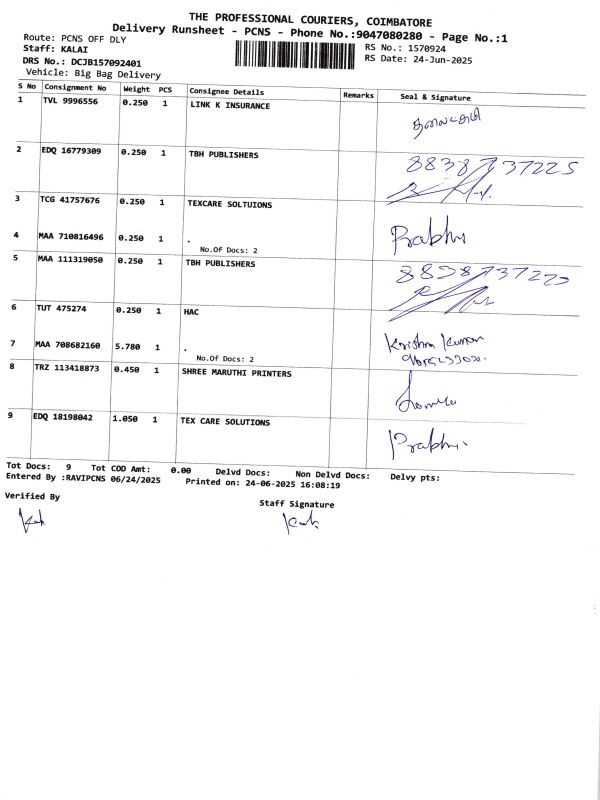 THE PROFESSIONAL COURIERS, COIMBATORE
Delivery Runsheet - PCNS - Phone No.:9047080280 - Page No.:1
Route: PCNS OFF DLY RS No.: 1570924
Staff: KALAI RS Date: 24-Jun-2025
DRS No.: DCJB157092401
Vehicle: Big Bag Delivery
S No Consignment No Weight PCS Consignee Details Remarks Seal & Signature
1 TVL 9996556 0.250 1 LINK K INSURANCE
2 EDQ 16779309 0.250 1 TBH PUBLISHERS 8838737225
3 TCG 41757676 0.250 1 TEXCARE SOLTUIONS
4 MAA 710816496 0.250 1 . Prabhu
No.Of Docs: 2
5 MAA 111319050 0.250 1 TBH PUBLISHERS
6 TUT 475274 0.250 1 HAC
7 MAA 708682160 5.780 1 . Krishna Kumar
No.Of Docs: 2
8 TRZ 113418873 0.450 1 SHREE MARUTHI PRINTERS
9 EDQ 18198042 1.050 1 TEX CARE SOLUTIONS Prabhu
Tot Docs: 9 Tot COD Amt: 0.00 Delvd Docs: Non Delvd Docs: Delvy pts:
Entered By :RAVIPCNS 06/24/2025 Printed on: 24-06-2025 16:08:19
Verified By Staff Signature